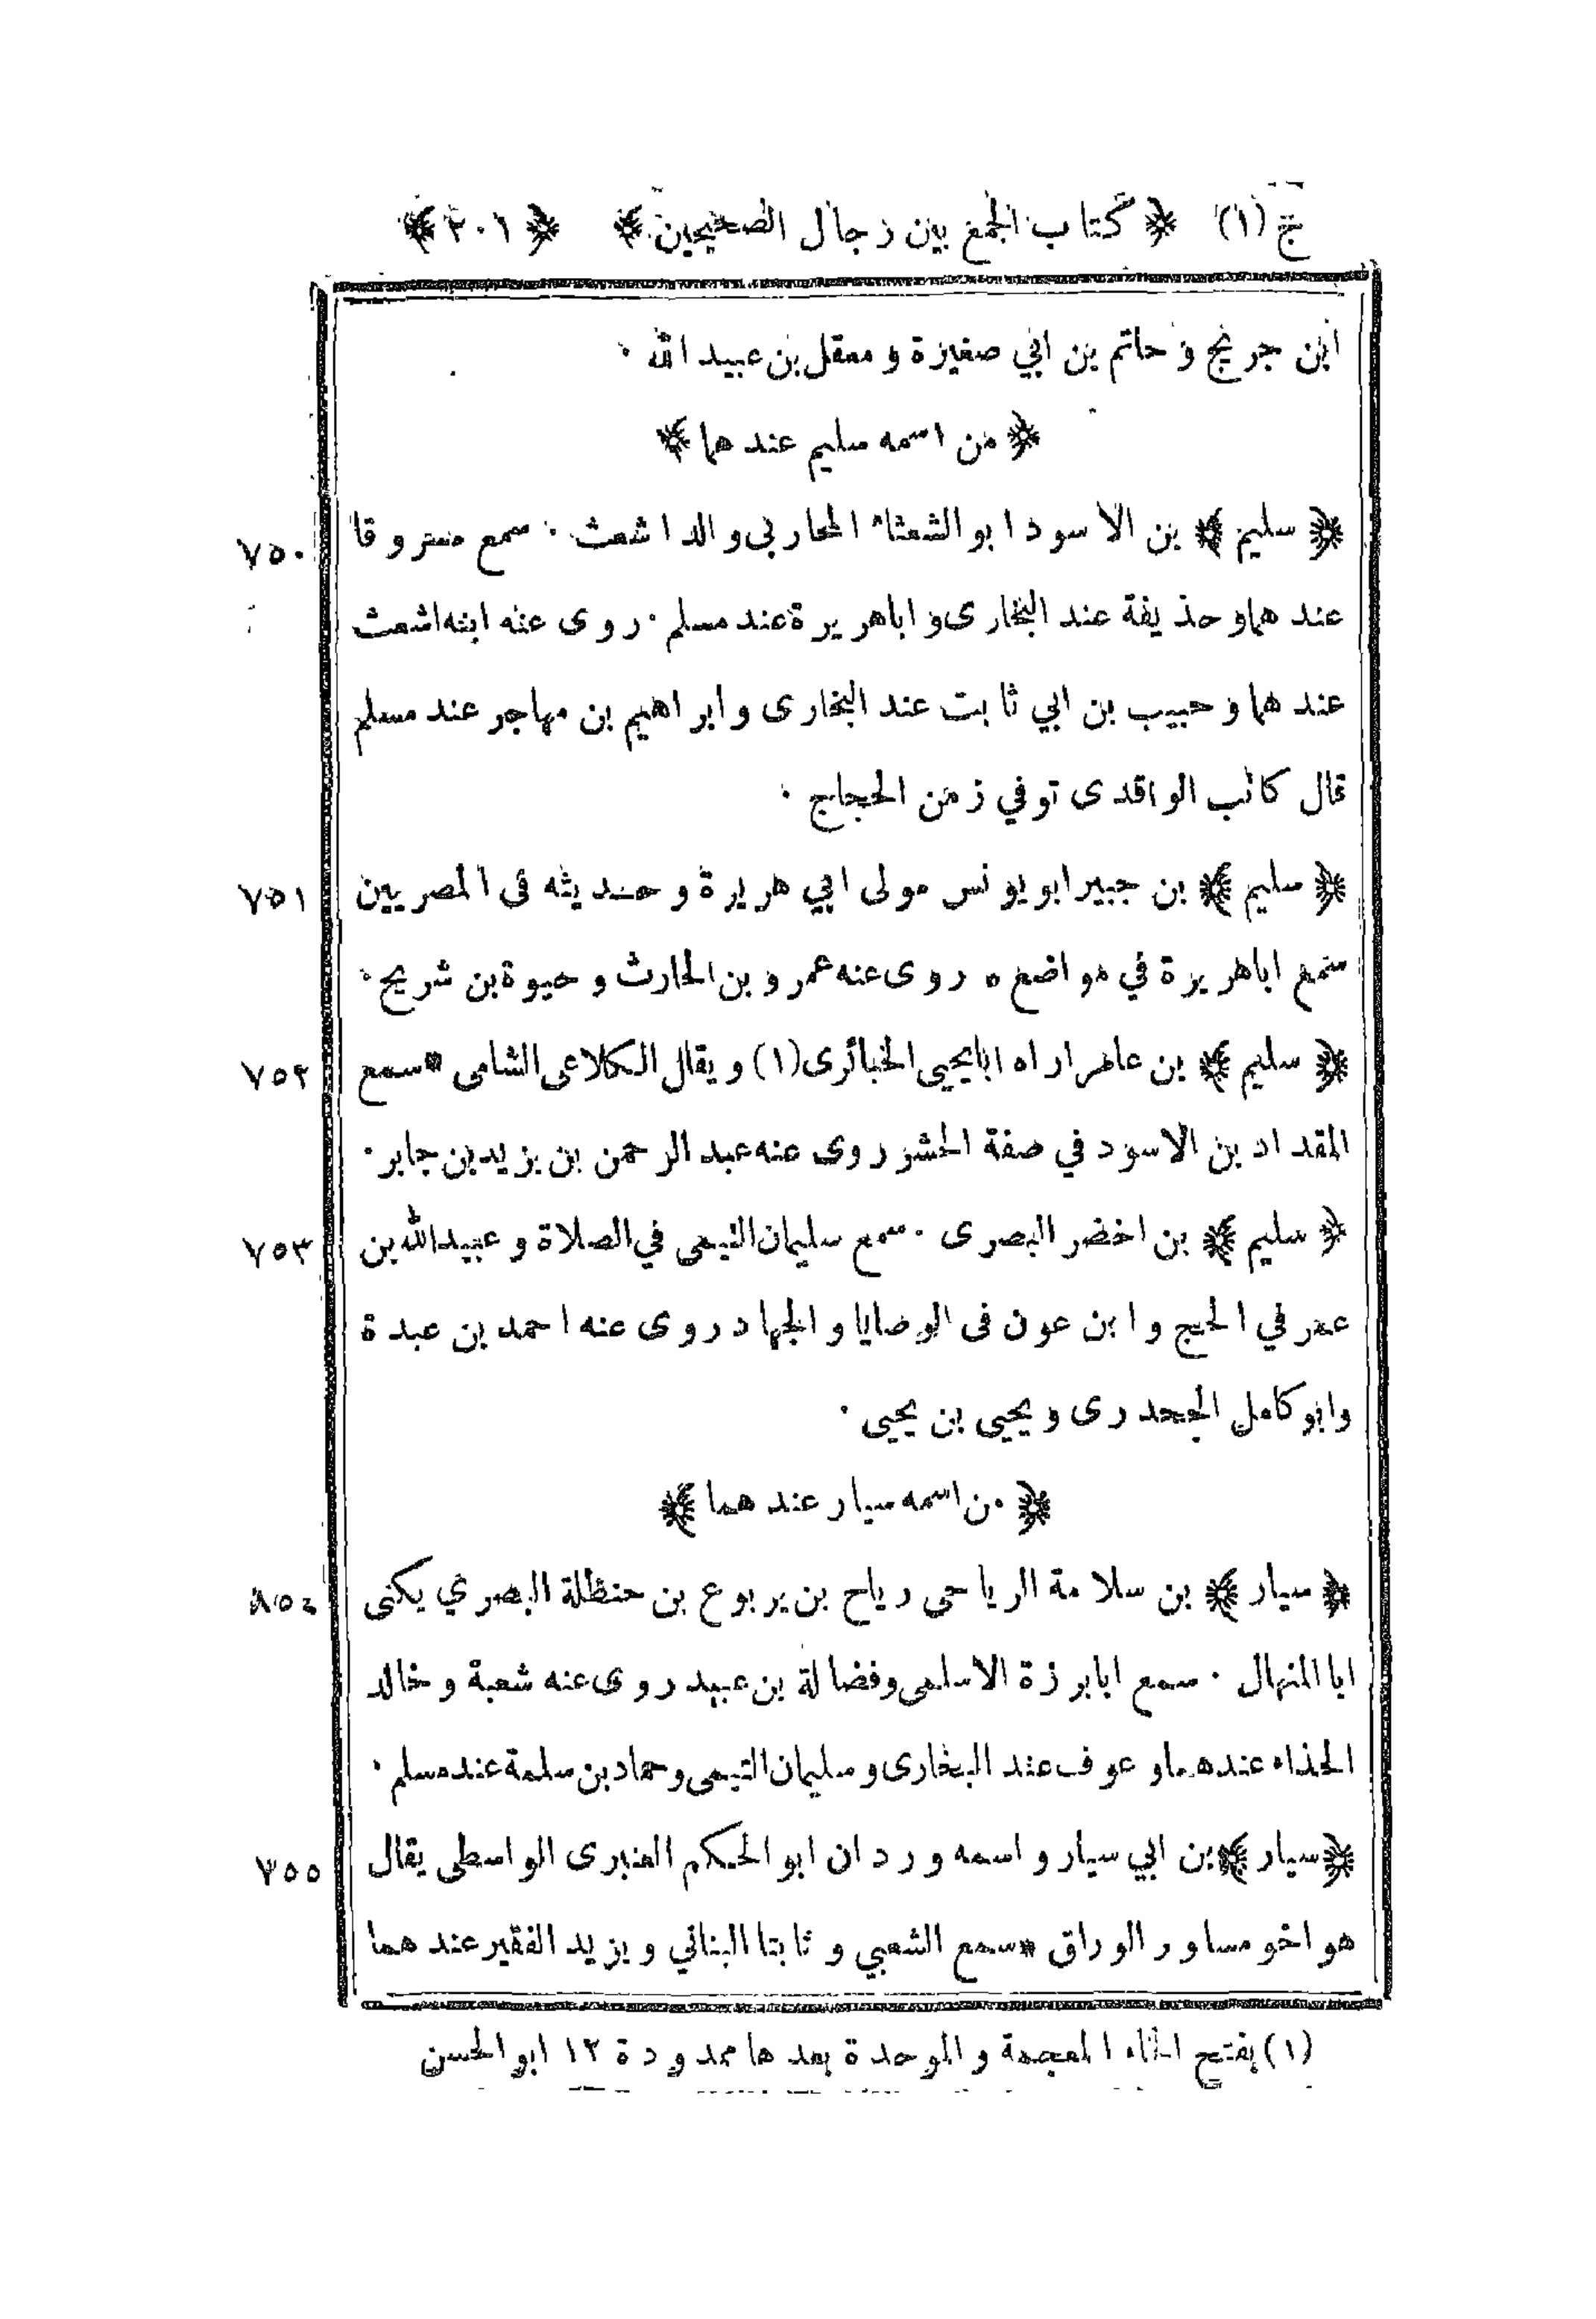 ج (١) ﴿ كتاب الجمع بين رجال الصحيحين ﴾ ﴿ ٢٠١ ﴾
ابن جريج و حاتم بن ابي صغيرة و معقل بن عبيد الله ٠
﴿ من اسمه سليم عند هما ﴾
﴿ سليم ﴾ بن الاسود ابو الشعثاء المحاربي والد اشعث ٠ سمع مسروقا ٧٥٠
عند هما و حذيفة عند البخارى و اباهريرة عند مسلم ٠ روى عنه ابنه اشعث
عند هما و حبيب بن ابي ثابت عند البخارى و ابراهيم بن مهاجر عند مسلم
قال كاتب الواقدى توفي زمن الحجاج ٠
﴿ سليم ﴾ بن جبير ابو يونس مولى ابي هريرة و حديثه فى المصريين ٧٥١
سمع اباهريرة في مواضع ٠ روى عنه عمرو بن الحارث و حيوة بن شريح ٠
﴿ سليم ﴾ بن عامر اراه ابايحيى الخبائرى (١) و يقال الكلاعى الشامى * سمع ٧٥٢
المقداد بن الاسود في صفة الحشر روى عنه عبد الرحمن بن يزيد بن جابر ٠
﴿ سليم ﴾ بن اخضر البصرى ٠ سمع سليمان التيمى في الصلاة و عبيد الله بن ٧٥٣
عمر في الحج و ابن عون فى الوصايا و الجهاد روى عنه احمد بن عبدة
وابو كامل الجحدرى و يحيى بن يحيى ٠
﴿ من اسمه سيار عند هما ﴾
﴿ سيار ﴾ بن سلامة الرياحى رياح بن يربوع بن حنظلة البصري يكنى
ابا المنهال ٠ سمع ابابرزة الاسلمى وفضالة بن عبيد روى عنه شعبة و خالد
الحذاء عندهما و عوف عند البخارى و سليمان التيمى و حماد بن سلمة عند مسلم ٠
﴿ سيار ﴾ بن ابي سيار و اسمه وردان ابو الحكم العنبرى الواسطى يقال
هو اخو مساور الوراق * سمع الشعبي و ثابتا البناني و يزيد الفقير عند هما
(١) بفتح الخاء المعجمة و الموحدة بعدها ممدودة ١٢ ابو الحسن